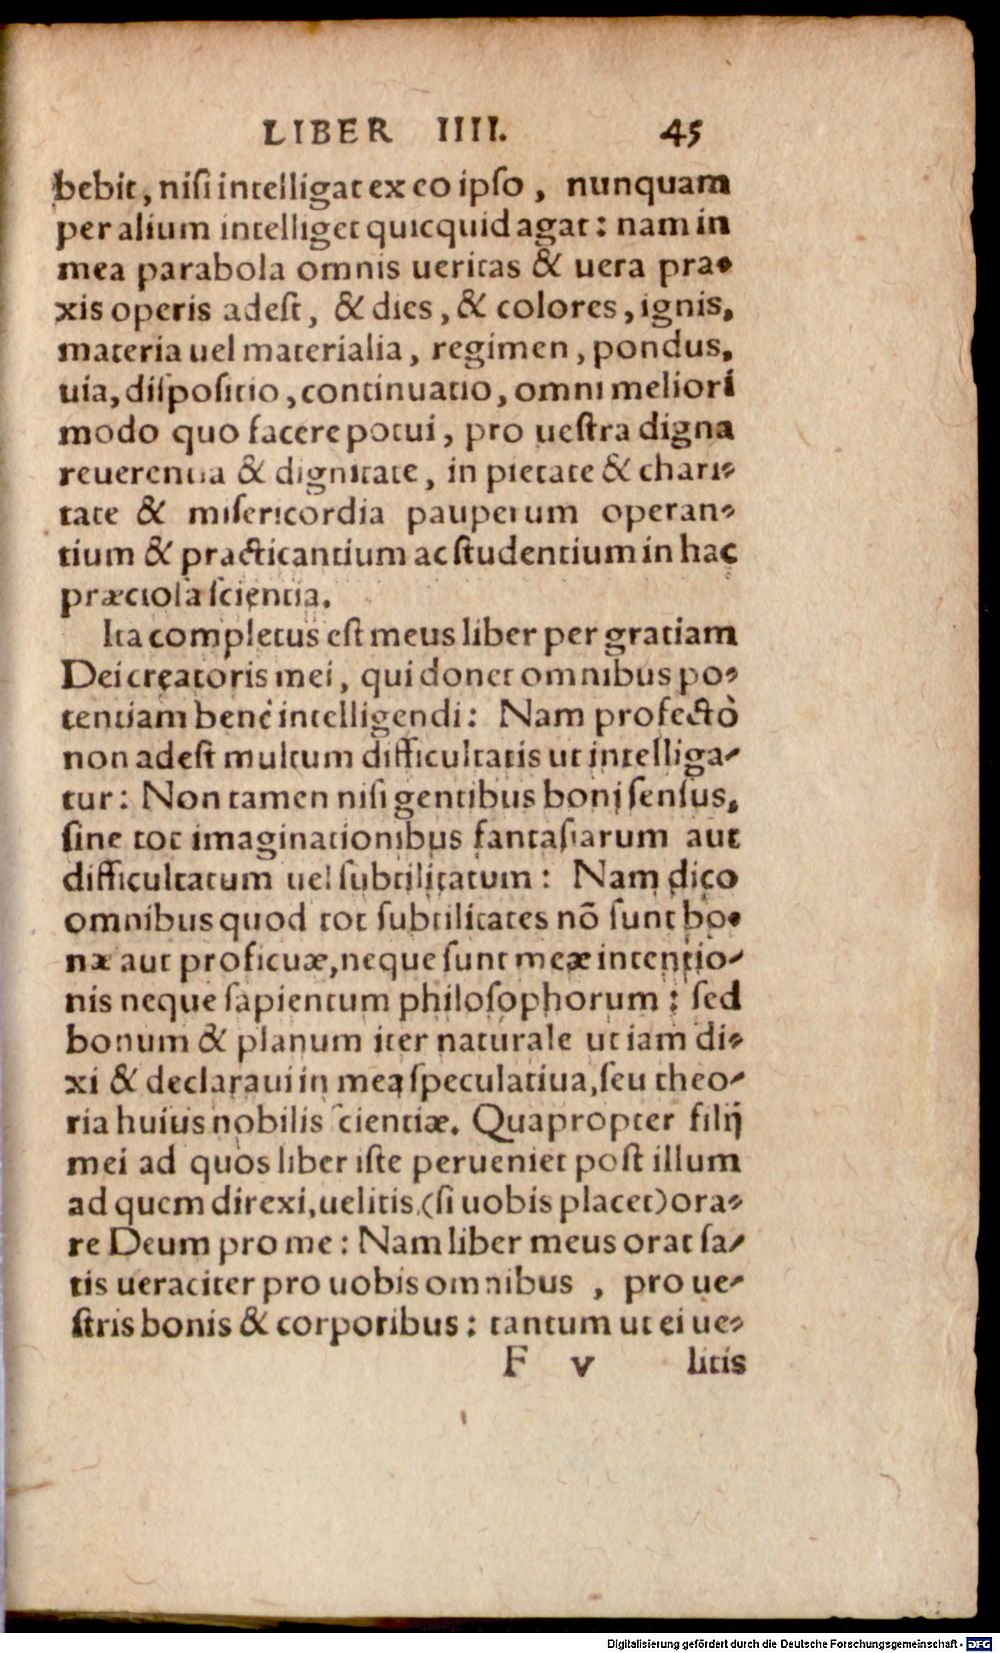 LIBER IIII. 45
bebit, niſi intelligat ex eo ipſo, nunquam
per alium intelliget quicquid agat: nam in
mea parabola omnis ueritas & uera pra-
xis operis adeſt, & dies, & colores, ignis,
materia uel materialia, regimen, pondus,
uia, diſpoſitio, continuatio, omni meliori
modo quo facere potui, pro ueſtra digna
reuerentia & dignitate, in pietate & chari-
tate & miſericordia pauperum operan-
tium & practicantium ac ſtudentium in hac
præcioſa ſcientia.
Ita completus eſt meus liber per gratiam
Dei creatoris mei, qui donet omnibus po-
tentiam benè intelligendi: Nam profectò
non adeſt multum difficultatis ut intelliga-
tur: Non tamen niſi gentibus boni ſenſus,
ſine tot imaginationibus fantaſiarum aut
difficultatum uel ſubtilitatum: Nam dico
omnibus quod tot ſubtilitates nõ ſunt bo-
næ aut proficuæ, neque ſunt meæ intentio-
nis neque ſapientum philoſophorum: ſed
bonum & planum iter naturale ut iam di-
xi & declaraui in mea ſpeculatiua, ſeu theo-
ria huius nobilis ſcientiæ. Quapropter filij
mei ad quos liber iſte perueniet poſt illum
ad quem direxi, uelitis (ſi uobis placet) ora-
re Deum pro me: Nam liber meus orat ſa-
tis ueraciter pro uobis omnibus, pro ue-
ſtris bonis & corporibus: tantum ut ei ue-
F v litis
Digitalisierung gefördert durch die Deutsche Forschungsgemeinschaft - DFG